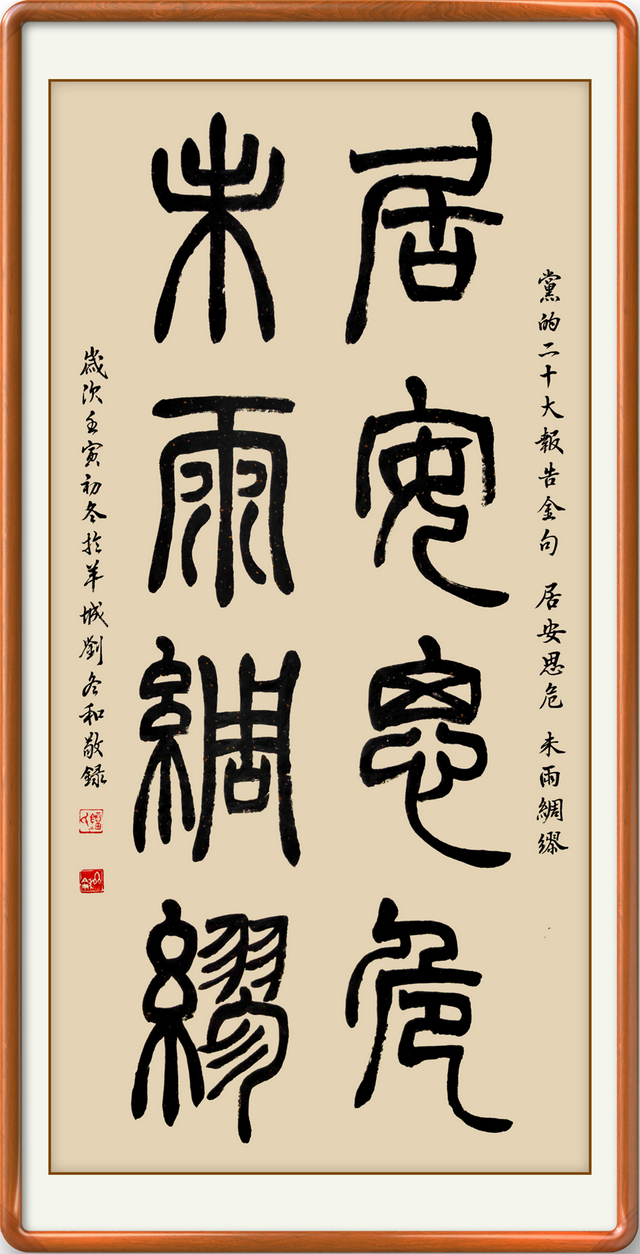 黨的二十大報告金句 居安思危 未雨綢繆
居安思危
未雨綢繆
歲次壬寅初冬於羊城劉冬和敬錄